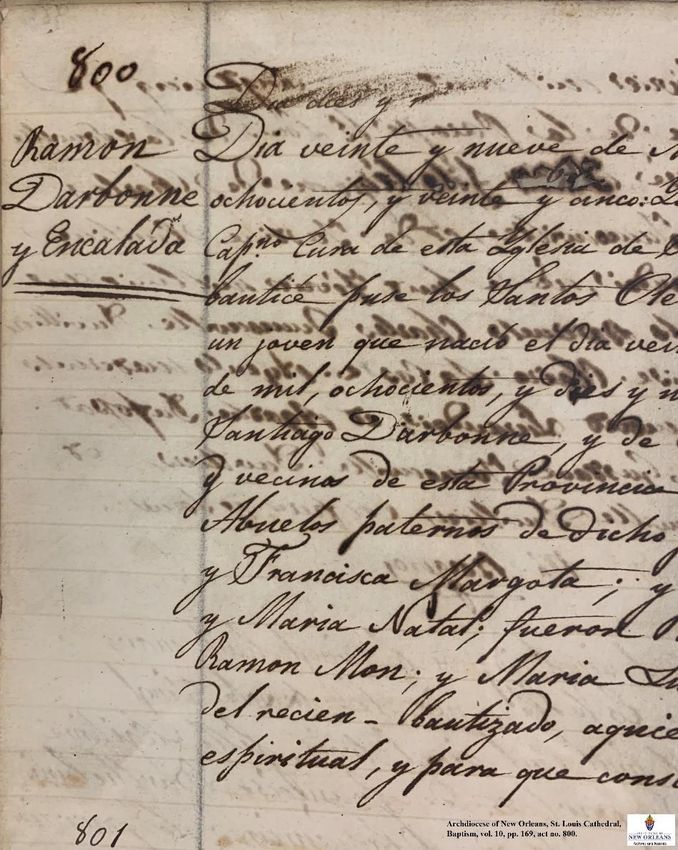 800
Dia dies y n
Ramon
Darbonne
y Encalada
Dia veinte y nueve de
ochocientos, y veinte y cinco:
Capno. Cura de esta Yglesia de
bautice puse los Santos Ole
un joven que nació el dia vei
de mil, ochocientos, y dies y n
Santiago Darbonne, y de
y vecinos de esta Provincia
Abuelos paternos de dicho
y Francisca Margota; y
y Maria Natal; fueron
Ramon Mon; y Maria Lu
del recien - bautizado, aquie
espiritual, y para que cons
801
Archdiocese of New Orleans, St. Louis Cathedral,
Baptism, vol. 10, pp. 169, act no. 800.
NEW ORLEANS